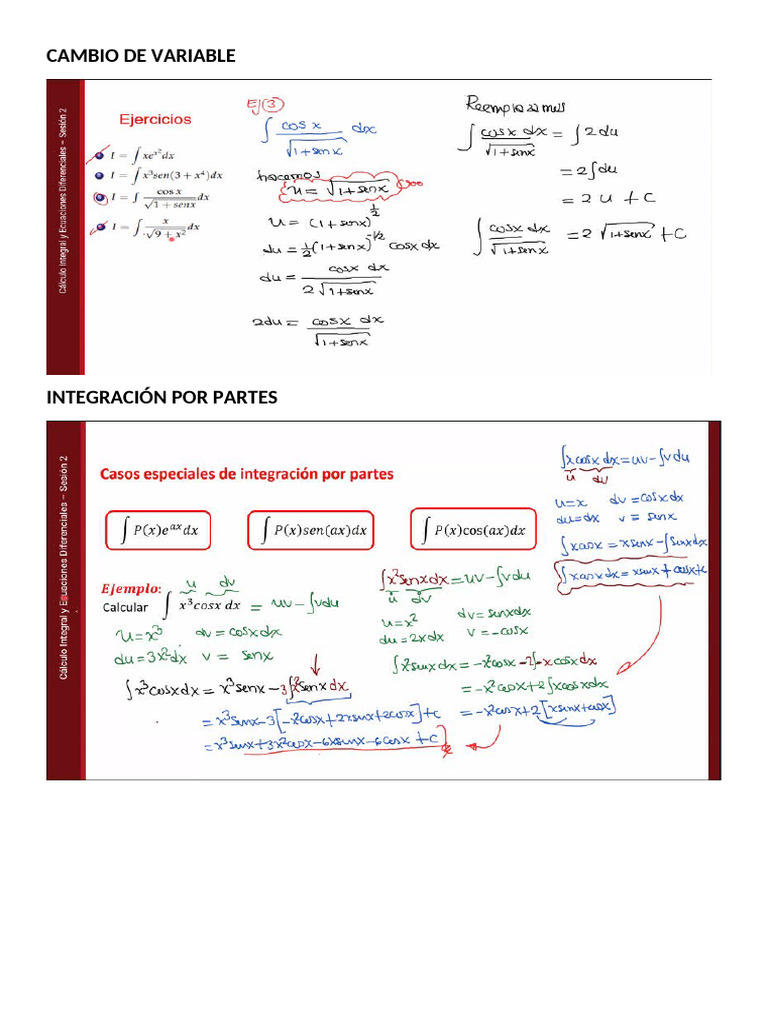 CAMBIO DE VARIABLE
Cálculo Integral y Ecuaciones Diferenciales – Sesión 2
Ejercicios
I = ∫ xe^{x²}dx
I = ∫ x³sen(3 + x⁴)dx
I = ∫ cosx/√(1 + senx) dx
I = ∫ x/√(9 + x²) dx
EJ(3)
∫ cosx/√(1+senx) dx
hacemos
u = √(1+senx)
u = (1+senx)^{1/2}
du = 1/2 (1+senx)^{-1/2} cosx dx
du = cosx dx/(2√(1+senx))
2du = cosx dx/√(1+senx)
∫ cosx dx/√(1+senx) = ∫ 2du
= 2∫du
= 2u + C
∫ cosx dx/√(1+senx) = 2√(1+senx) + C
INTEGRACIÓN POR PARTES
Cálculo Integral y Ecuaciones Diferenciales – Sesión 2
Casos especiales de integración por partes
∫ P(x)e^{ax}dx
∫ P(x)sen(ax)dx
∫ P(x)cos(ax)dx
Ejemplo:
u dv
Calcular ∫ x³cosx dx = uv - ∫vdu
u = x³ dv = cosx dx
du = 3x²dx v = senx
∫x³cosxdx = x³senx - 3∫x²senxdx
= x³senx - 3[-x²cosx + 2xsenx + 2cosx] + C
= x³senx + 3x²cosx - 6xsenx - 6cosx + C
∫x²senxdx = uv - ∫vdu
u dv
u = x² dv = senxdx
du = 2xdx v = -cosx
∫x²senxdx = -x²cosx - 2∫-xcosxdx
= -x²cosx + 2∫xcosxdx
= -x²cosx + 2[xsenx + cosx]
∫xcosxdx = uv - ∫vdu
u dv
u = x dv = cosxdx
du = dx v = senx
∫xcosx = xsenx - ∫senxdx
∫xcosxdx = xsenx + cosx + c